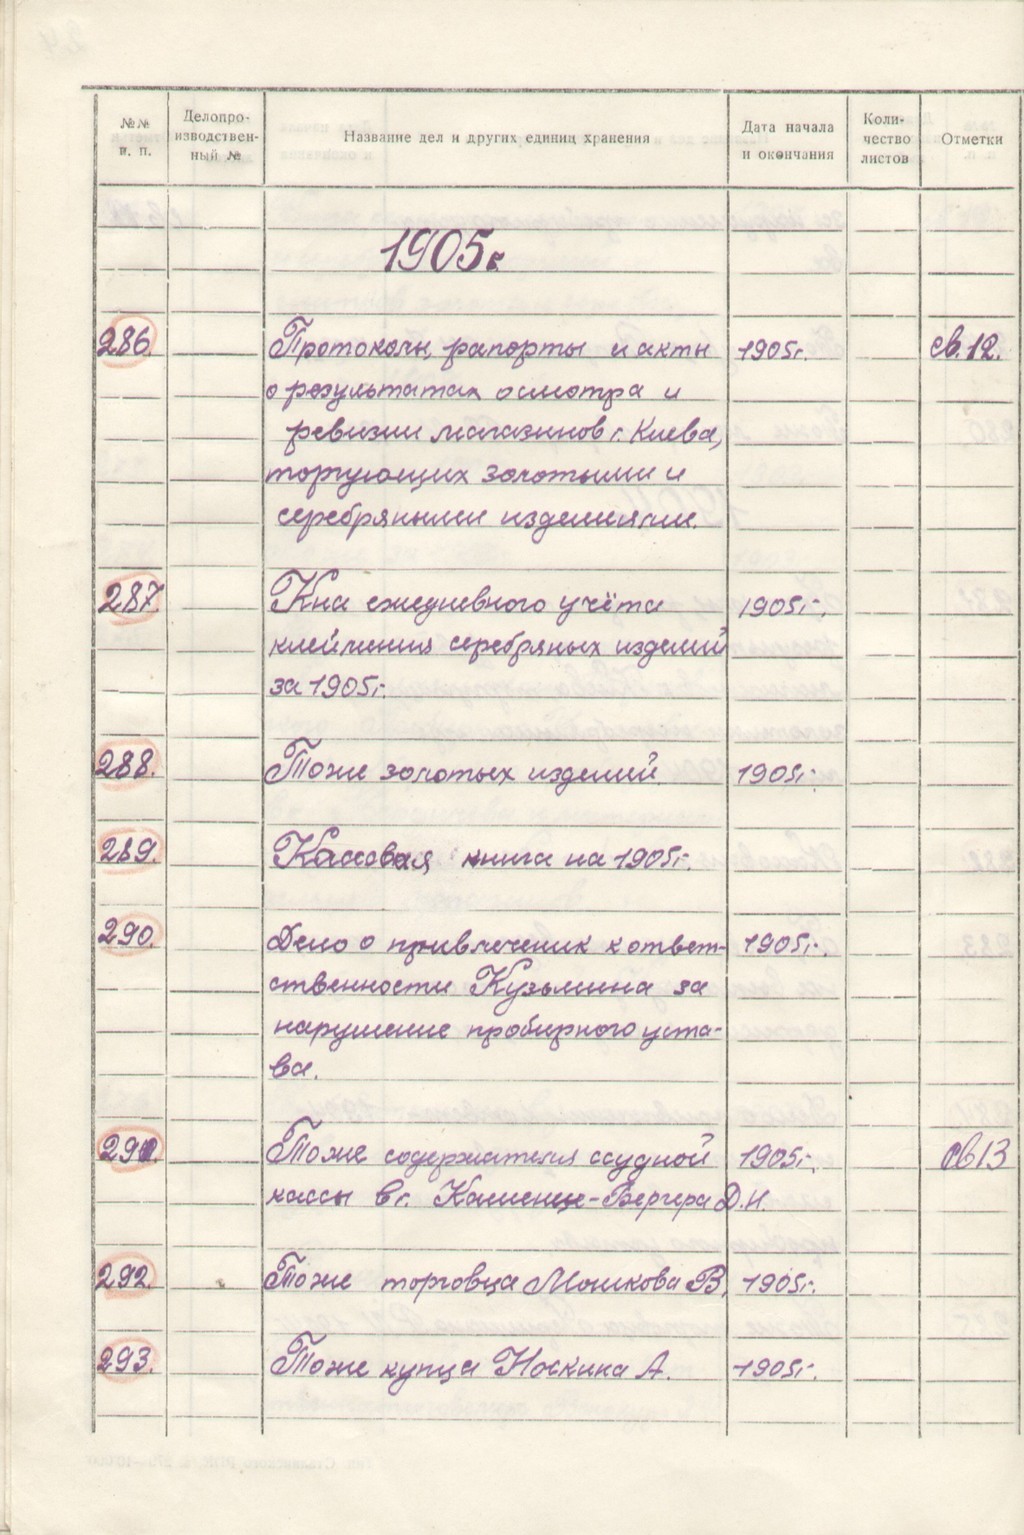 №№ п. п.
Делопро-
изводствен-
ный №
Название дел и других единиц хранения
Дата начала
и окончания
Коли-
чество
листов
Отметки
1905г.
286. Протоколы, рапорты и акты 1905г. св. 12.
о результатах осмотра и
ревизии магазинов г. Киева,
торгующих золотыми и
серебряными изделиями.
287. Кна ежедневного учёта 1905г.
клеймения серебряных изделий
за 1905г.
288. Тоже золотых изделий 1905г.
289. Кассовая книга на 1905г.
290. Дело о привлечении к ответ- 1905г.
ственности Кузьмина за
нарушение пробирного уста-
ва.
291. Тоже содержателя ссудной 1905г. св 13
кассы в г. Каменце-Вергера Д.Н.
292. Тоже торговца Мошкова В. 1905г.
293. Тоже купца Носкина А. 1905г.